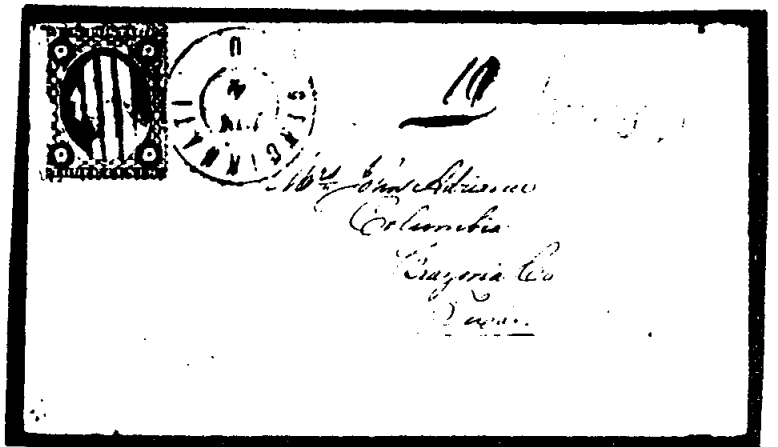 CINCINNATI
10
Mrs John Adriance
Columbia
Brazoria Co
Texas